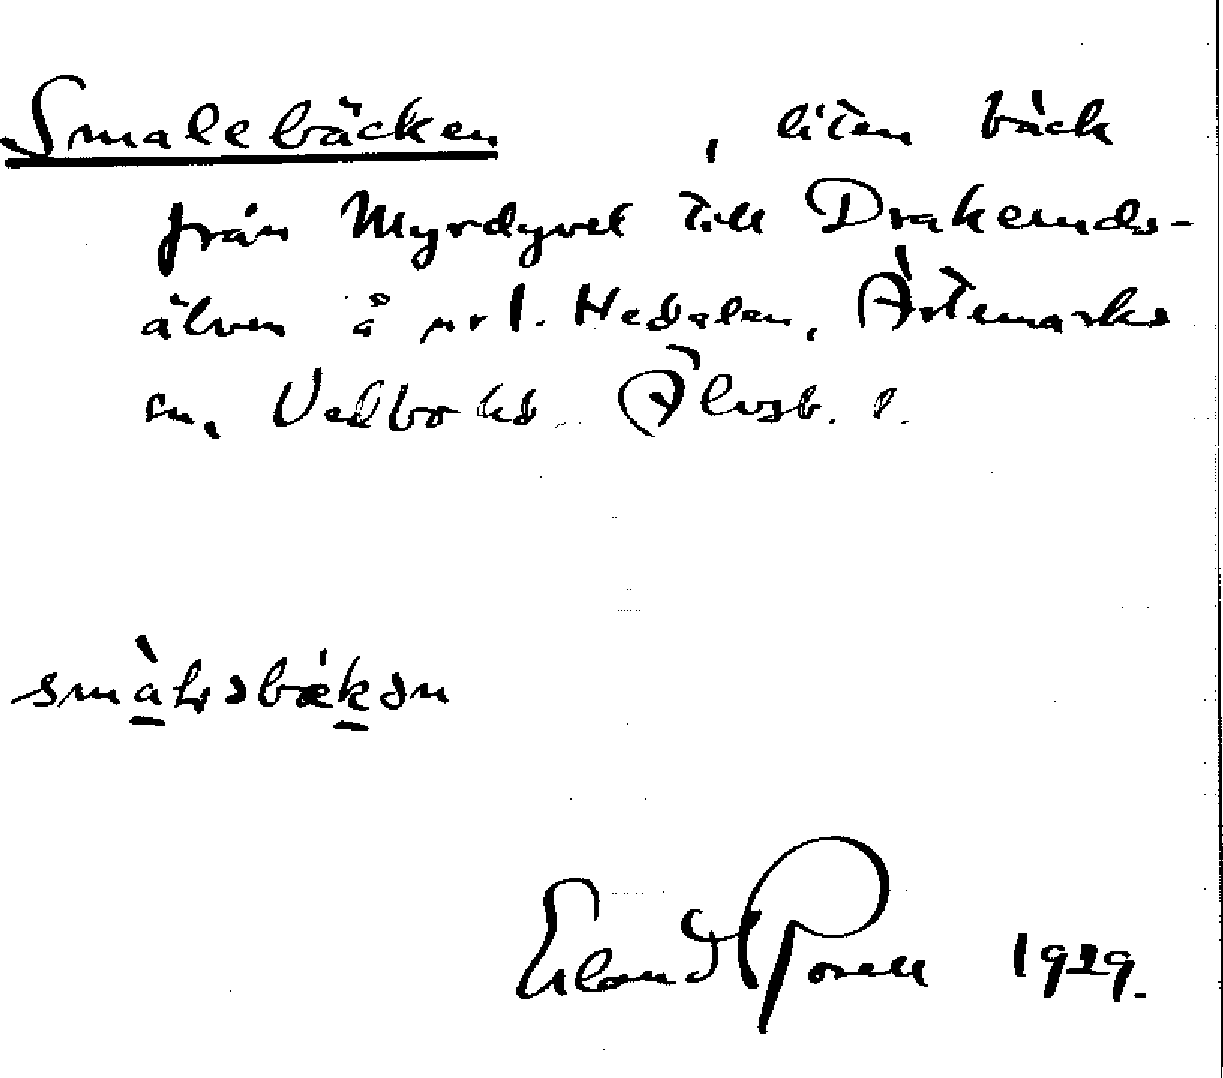 Smalebäcken, liten bäck
från Myrdyvet till Drakelunds-
älven å Nedalen, Ärtemarks
sn, Vedbo hd Älvsb. l.
Erland Rosell 1929.